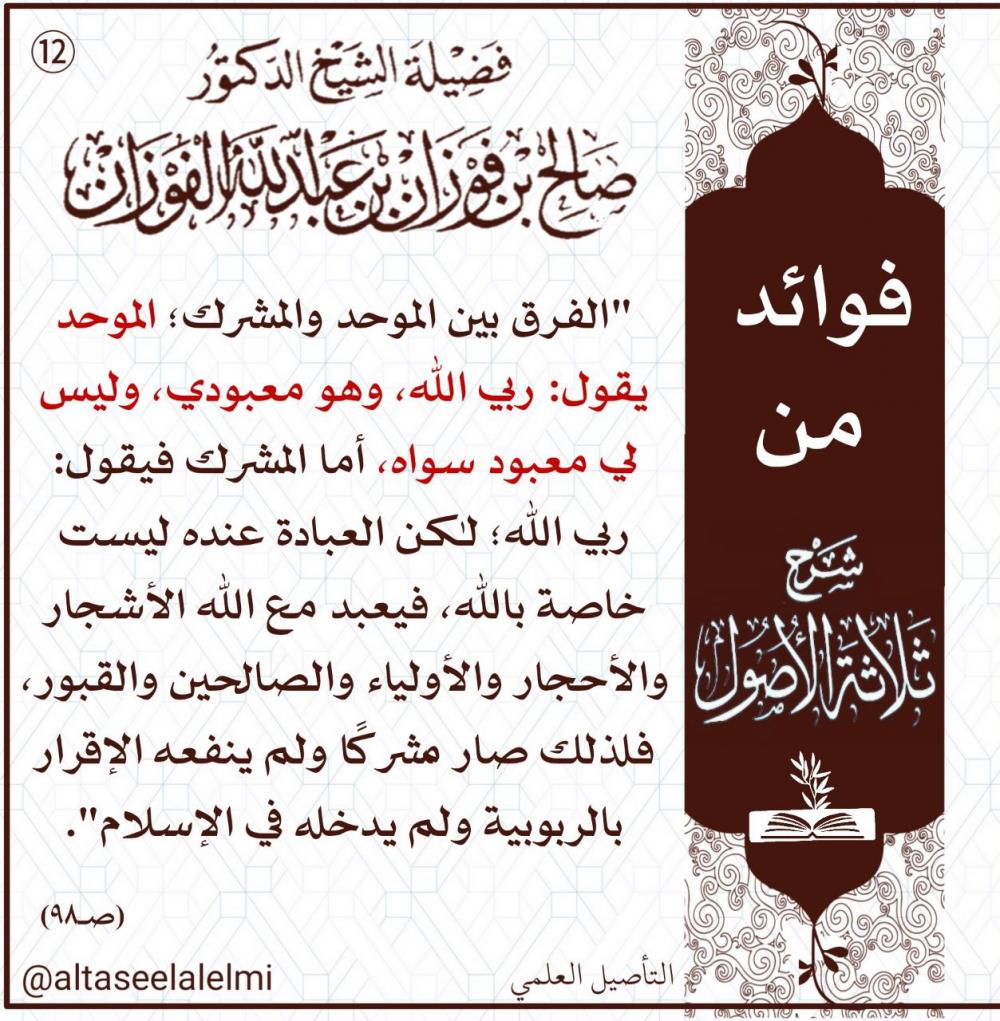 12
فَضِيلَة الشَيْخ الدَكتوُرُ
صَالح بْن فَوْزَان بْن عَبْد اللَّه الفَوْزَان
فوائد
من
شَرْح
ثَلَاثَة الأُصُول
"الفرق بين الموحد والمشرك؛ الموحد
يقول: ربي الله، وهو معبودي، وليس
لي معبود سواه، أما المشرك فيقول:
ربي الله؛ لٰكن العبادة عنده ليست
خاصة بالله، فيعبد مع الله الأشجار
والأحجار والأولياء والصالحين والقبور،
فلذلك صار مشركًا ولم ينفعه الإقرار
بالربوبية ولم يدخله في الإسلام".
(صـ٩٨)
التأصيل العلمي
@altaseelalelmi